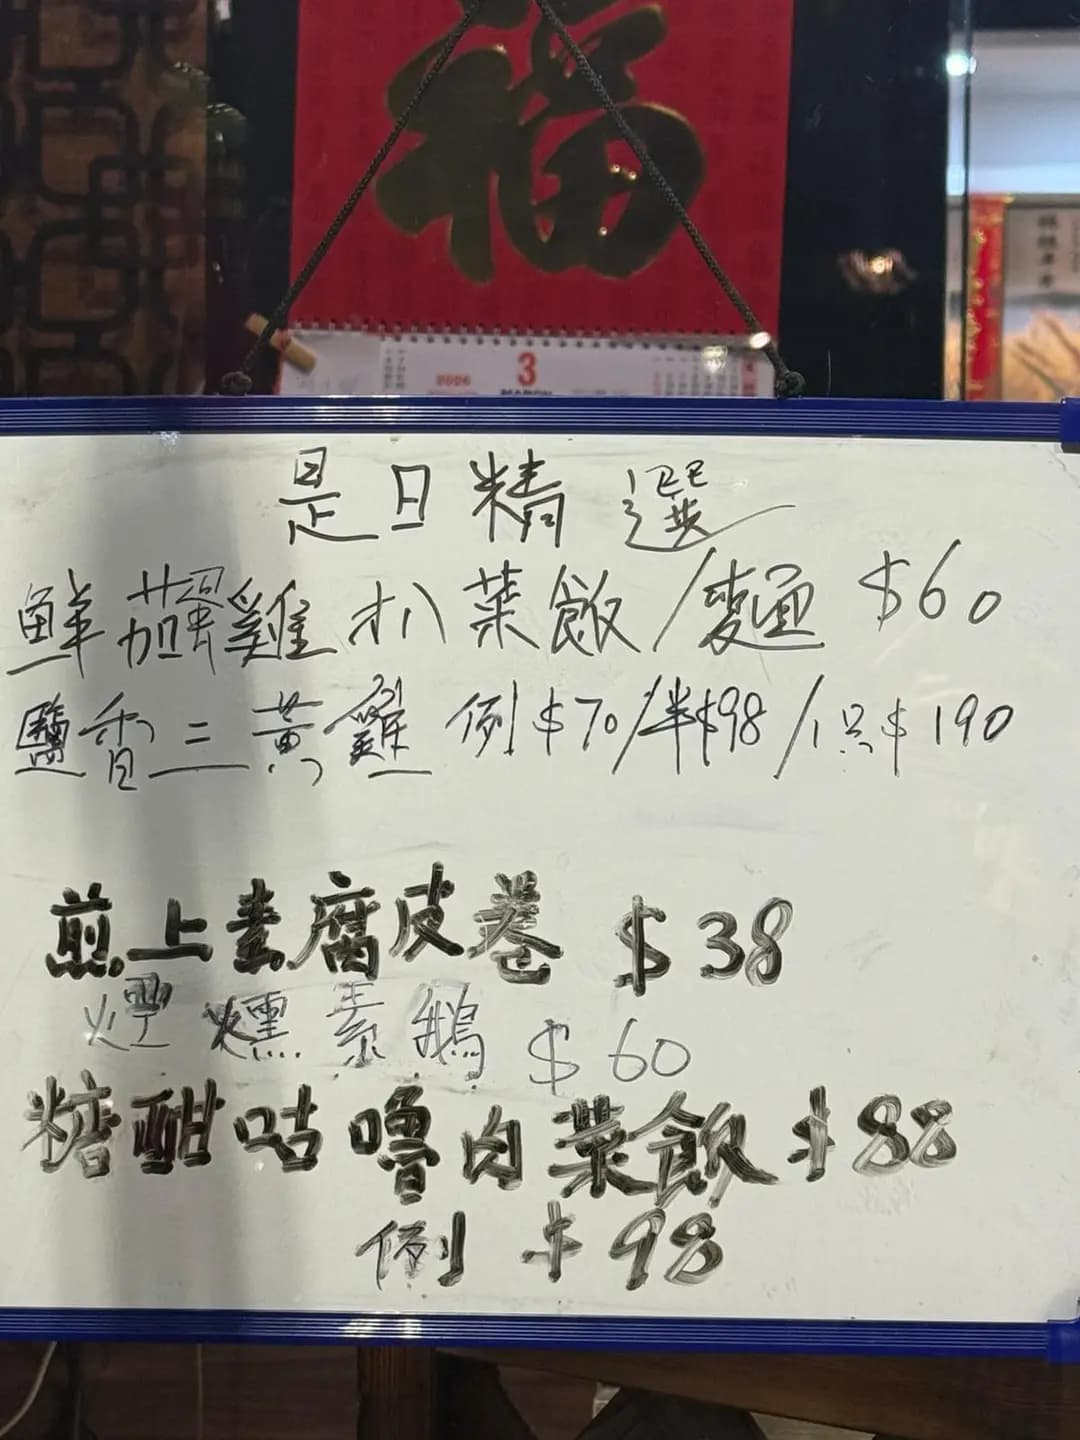 福
2026 3
MARCH
是日精選
鮮茄蛋雞扒菜飯/麵 $60
鹽香三黃雞 例$70/半$98/1只$190
煎上素腐皮卷 $38
煙燻素鵝 $60
糖醋咕嚕肉菜飯 $88
例 $98